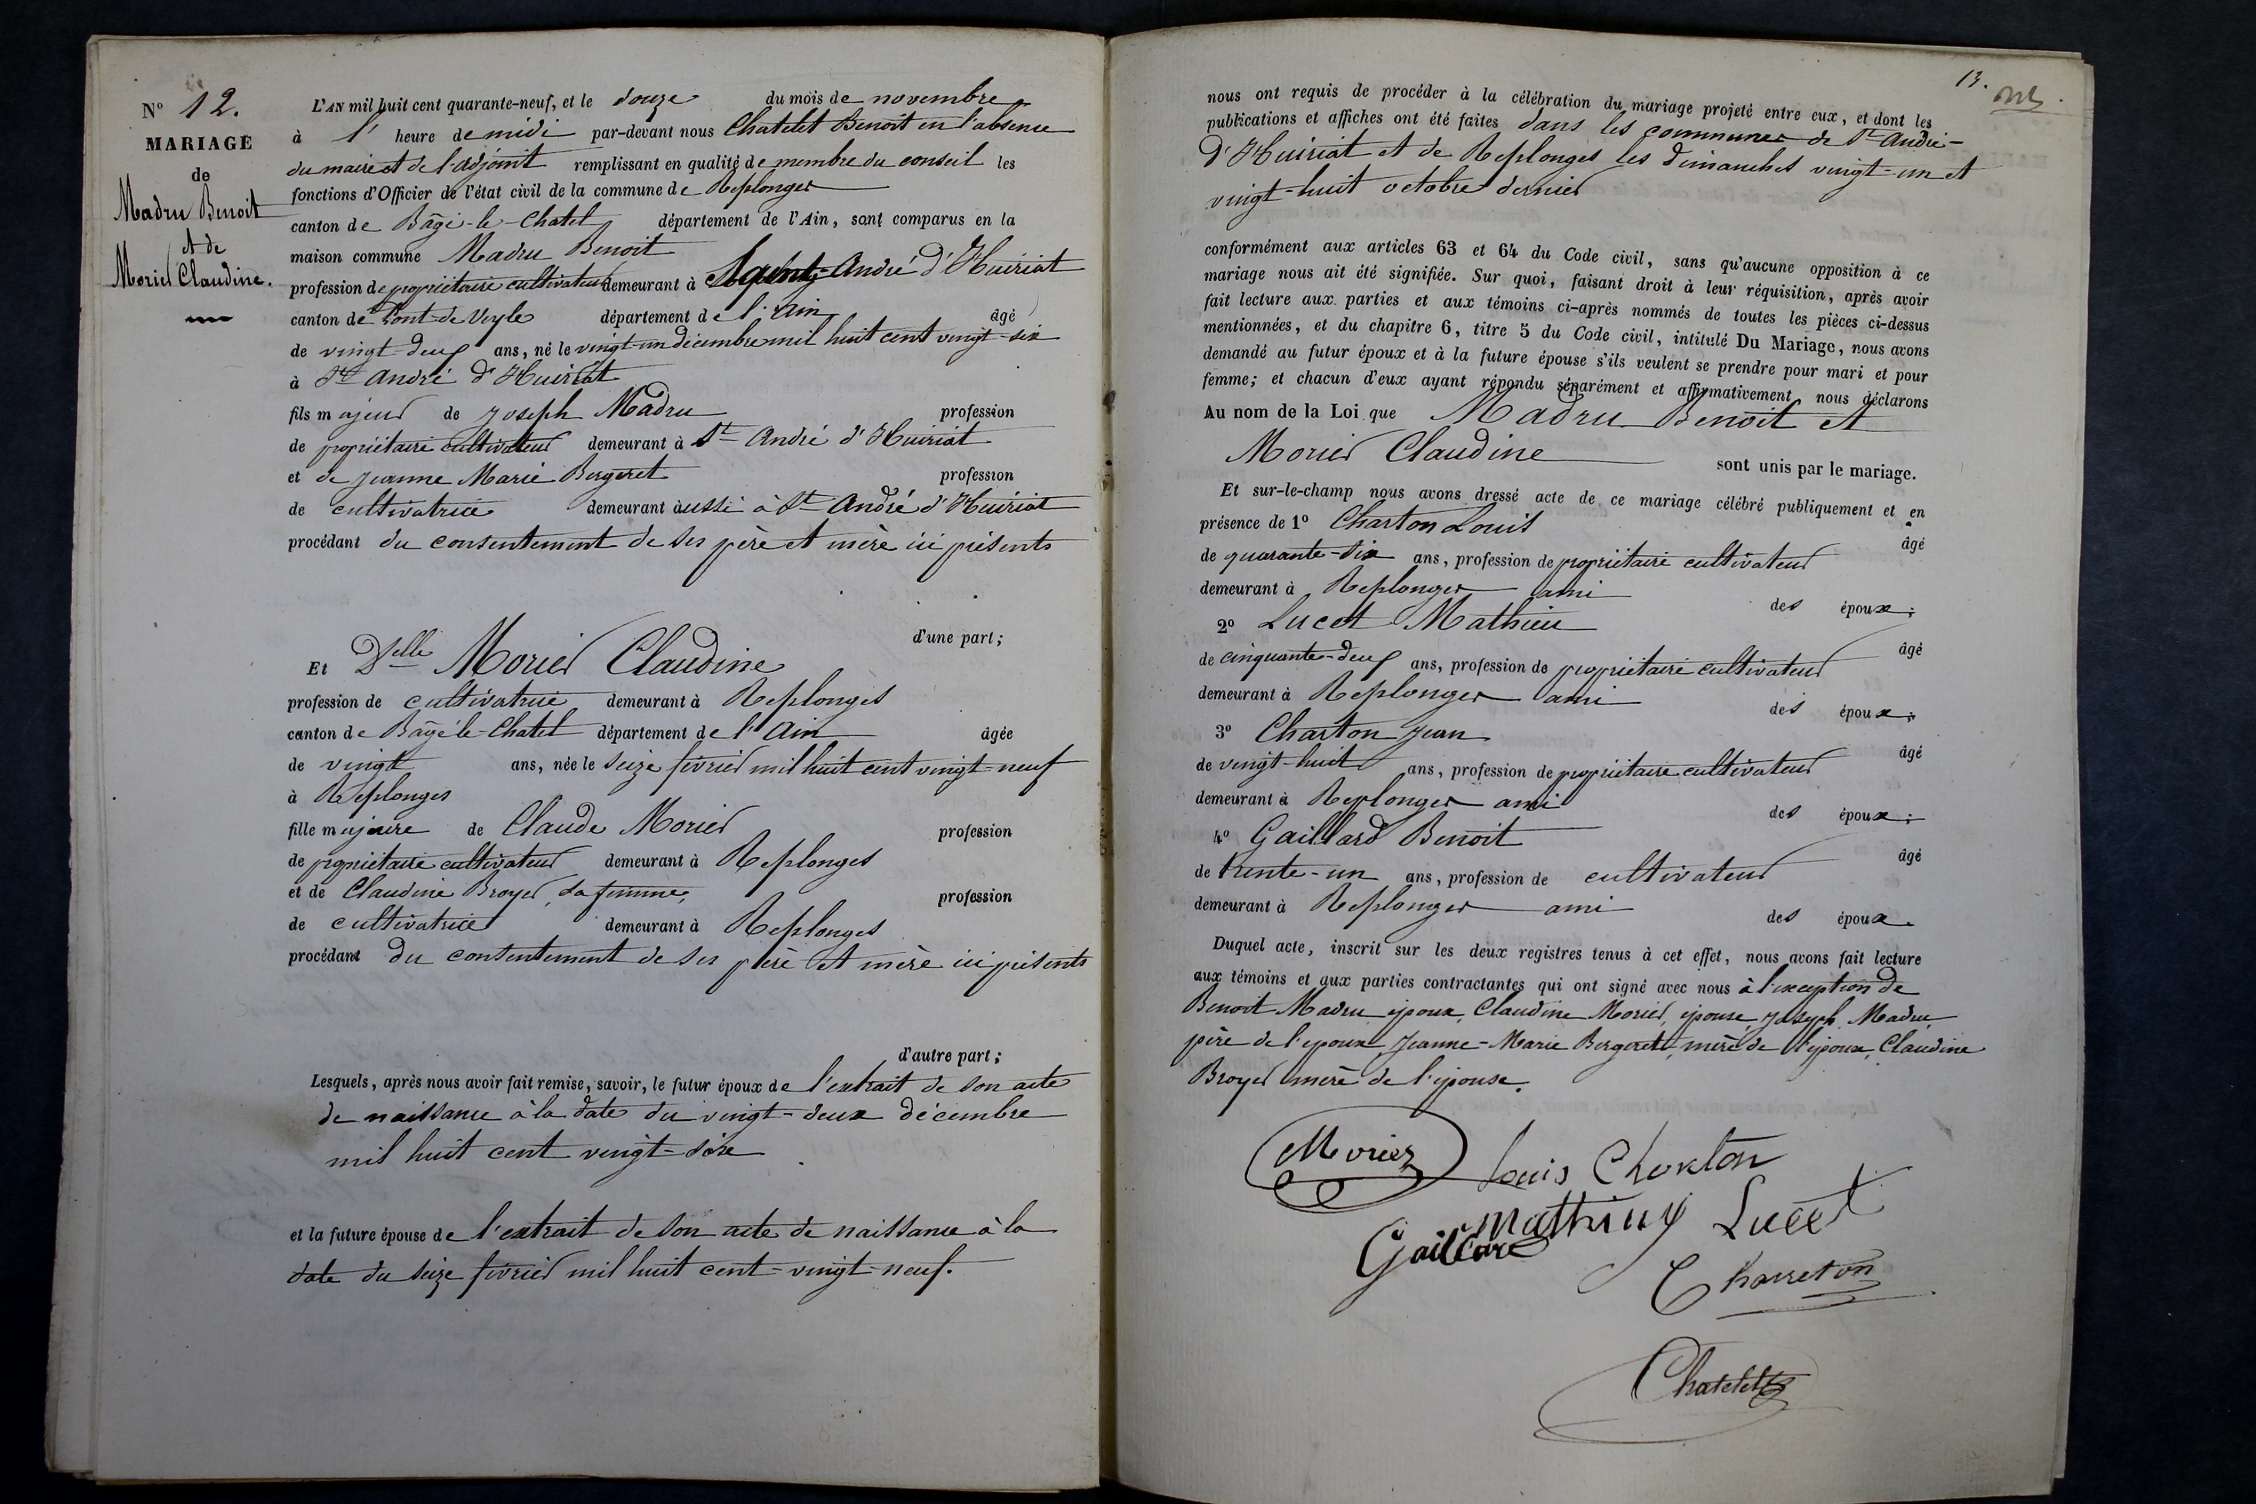 N° 12.
MARIAGE
de
Madru Benoit
et de
Morier Claudine.
L'AN mil huit cent quarante-neuf, et le douze du mois de novembre
à l' heure de midi par-devant nous Chatelet Benoit en l'absence
du maire et de l'adjoint remplissant en qualité de membre du conseil les
fonctions d'Officier de l'état civil de la commune de Replonges
canton de Bâgé-le-Chatel département de l'Ain, sont comparus en la
maison commune Madru Benoit
profession de propriétaire cultivateur demeurant à Saint-André d'Huiriat
canton de Pont-de-Veyle département de l'Ain âgé
de vingt-deux ans, né le vingt-un décembre mil huit cent vingt-six
à St André d'Huiriat
fils majeur de Joseph Madru profession
de propriétaire cultivateur demeurant à St André d'Huiriat
et de Jeanne Marie Bergeret profession
de cultivatrice demeurant aussi à St André d'Huiriat
procédant du consentement de ses père et mère ici présents
d'une part;
Et Delle Morier Claudine
profession de cultivatrice demeurant à Replonges
canton de Bâgé-le-Chatel département de l'Ain âgée
de vingt ans, née le seize février mil huit cent vingt-neuf
à Replonges
fille majeure de Claude Morier profession
de propriétaire cultivateur demeurant à Replonges
et de Claudine Broyer, sa femme, profession
de cultivatrice demeurant à Replonges
procédant du consentement de ses père et mère ici présents
d'autre part;
Lesquels, après nous avoir fait remise, savoir, le futur époux de l'extrait de son acte
de naissance à la date du vingt-deux décembre
mil huit cent vingt-six
et la future épouse de l'extrait de son acte de naissance à la
date du seize février mil huit cent-vingt-neuf.
13.
nous ont requis de procéder à la célébration du mariage projeté entre eux, et dont les
publications et affiches ont été faites dans les communes de St André-
d'Huiriat et de Replonges les dimanches vingt-un et
vingt-huit octobre dernier
conformément aux articles 63 et 64 du Code civil, sans qu'aucune opposition à ce
mariage nous ait été signifiée. Sur quoi, faisant droit à leur réquisition, après avoir
fait lecture aux parties et aux témoins ci-après nommés de toutes les pièces ci-dessus
mentionnées, et du chapitre 6, titre 5 du Code civil, intitulé Du Mariage, nous avons
demandé au futur époux et à la future épouse s'ils veulent se prendre pour mari et pour
femme; et chacun d'eux ayant répondu séparément et affirmativement nous déclarons
Au nom de la Loi que Madru Benoit et
Morier Claudine sont unis par le mariage.
Et sur-le-champ nous avons dressé acte de ce mariage célébré publiquement et en
présence de 1° Charton Louis âgé
de quarante-six ans, profession de propriétaire cultivateur
demeurant à Replonges ami des époux;
2° Lucet Mathieu âgé
de cinquante-deux ans, profession de propriétaire cultivateur
demeurant à Replonges ami des époux;
3° Charton Jean âgé
de vingt-huit ans, profession de propriétaire cultivateur
demeurant à Replonges ami des époux;
4° Gaillard Benoit âgé
de trente-un ans, profession de cultivateur
demeurant à Replonges ami des époux.
Duquel acte, inscrit sur les deux registres tenus à cet effet, nous avons fait lecture
aux témoins et aux parties contractantes qui ont signé avec nous à l'exception de
Benoit Madru époux, Claudine Morier, épouse, Joseph Madru,
père de l'époux, Jeanne-Marie Bergeret, mère de l'époux, Claudine
Broyer mère de l'épouse.
Morier
Louis Charton
Mathieu Lucet
Gaillard
Charreton
Chatelet